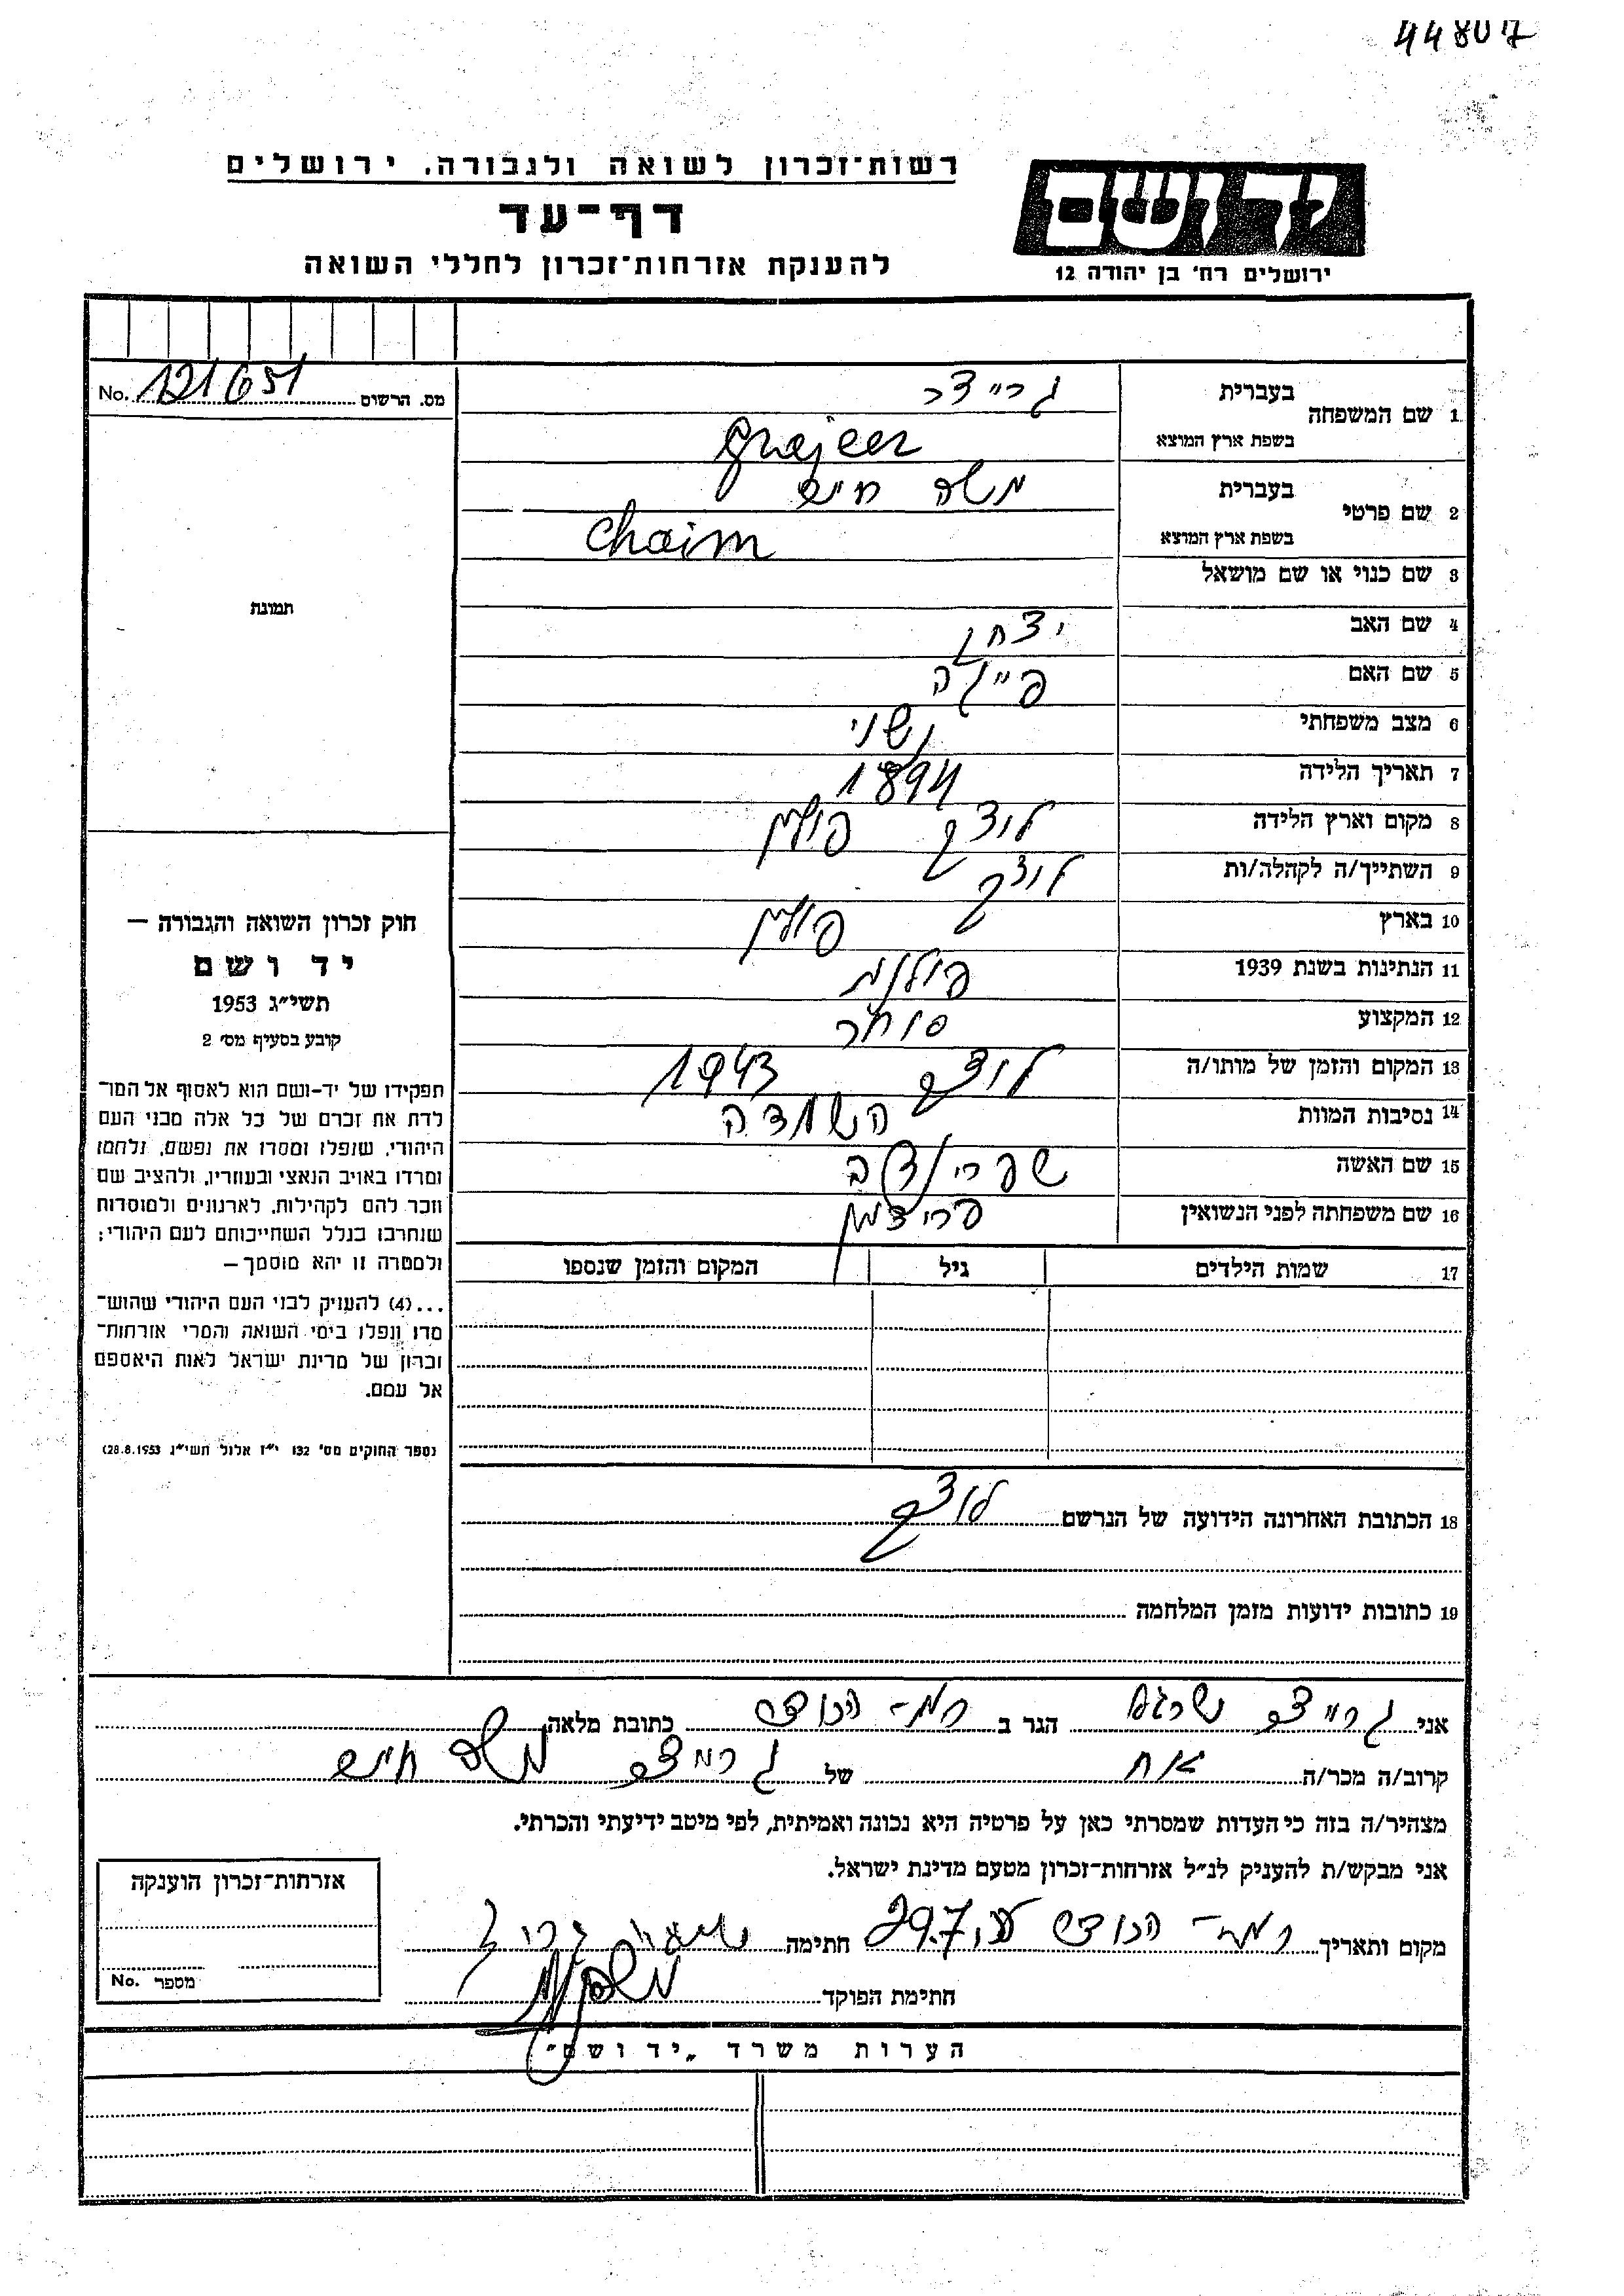 44807
רשות־זכרון לשואה ולגבורה. ירושלים
דף־עד
להענקת אזרחות־זכרון לחללי השואה
יד ושם
ירושלים רח' בן יהודה 12
מס. הרשום 121651 No.
1 שם המשפחה בעברית גרייצר
בשפת ארץ המוצא Grajcer
2 שם פרטי בעברית משה חיים
בשפת ארץ המוצא Chaim
3 שם כנוי או שם מושאל
4 שם האב יצחק
5 שם האם פייגה
6 מצב משפחתי נשוי
7 תאריך הלידה 1894
8 מקום וארץ הלידה לודז' פולין
9 השתייך/ה לקהלה/ות לודז'
10 בארץ פולין
11 הנתינות בשנת 1939 פולנית
12 המקצוע סוחר
13 המקום והזמן של מותו/ה 1943
14 נסיבות המוות השמדה
15 שם האשה
16 שם משפחתה לפני הנשואין
17 שמות הילדים גיל המקום והזמן שנספו
18 הכתובת האחרונה הידועה של הנרשם
19 כתובות ידועות מזמן המלחמה
תמונת
חוק זכרון השואה והגבורה –
יד ושם
תשי״ג 1953
קובע בסעיף מס׳ 2
תפקידו של יד־ושם הוא לאסוף אל המו־
לדת את זכרם של כל אלה מבני העם
היהודי, שנפלו ומסרו את נפשם, נלחמו
ומרדו באויב הנאצי ובעוזריו, ולהציב שם
וזכר להם לקהילות, לארגונים ולמוסדות
שנחרבו בגלל השתייכותם לעם היהודי;
ולמטרה זו יהא מוסמך –
...(4) להעניק לבני העם היהודי שהוש־
מדו ונפלו בימי השואה והמרי אזרחות־
זכרון של מדינת ישראל לאות היאספם
אל עמם.
(ספר החוקים מס׳ 132 י״ז אלול תשי״ג 28.8.1953)
אני גרייצר הגר ב רמת־הכובש כתובת מלאה
קרוב/ה מכר/ה אח של גרייצר משה חיים
מצהיר/ה בזה כי העדות שמסרתי כאן על פרטיה היא נכונה ואמיתית, לפי מיטב ידיעתי והכרתי.
אני מבקש/ת להעניק לנ״ל אזרחות־זכרון מטעם מדינת ישראל.
מקום ותאריך רמת־הכובש 29.7 חתימה
חתימת הפוקד
אזרחות־זכרון הוענקה
מספר No.
הערות משרד „יד ושם״